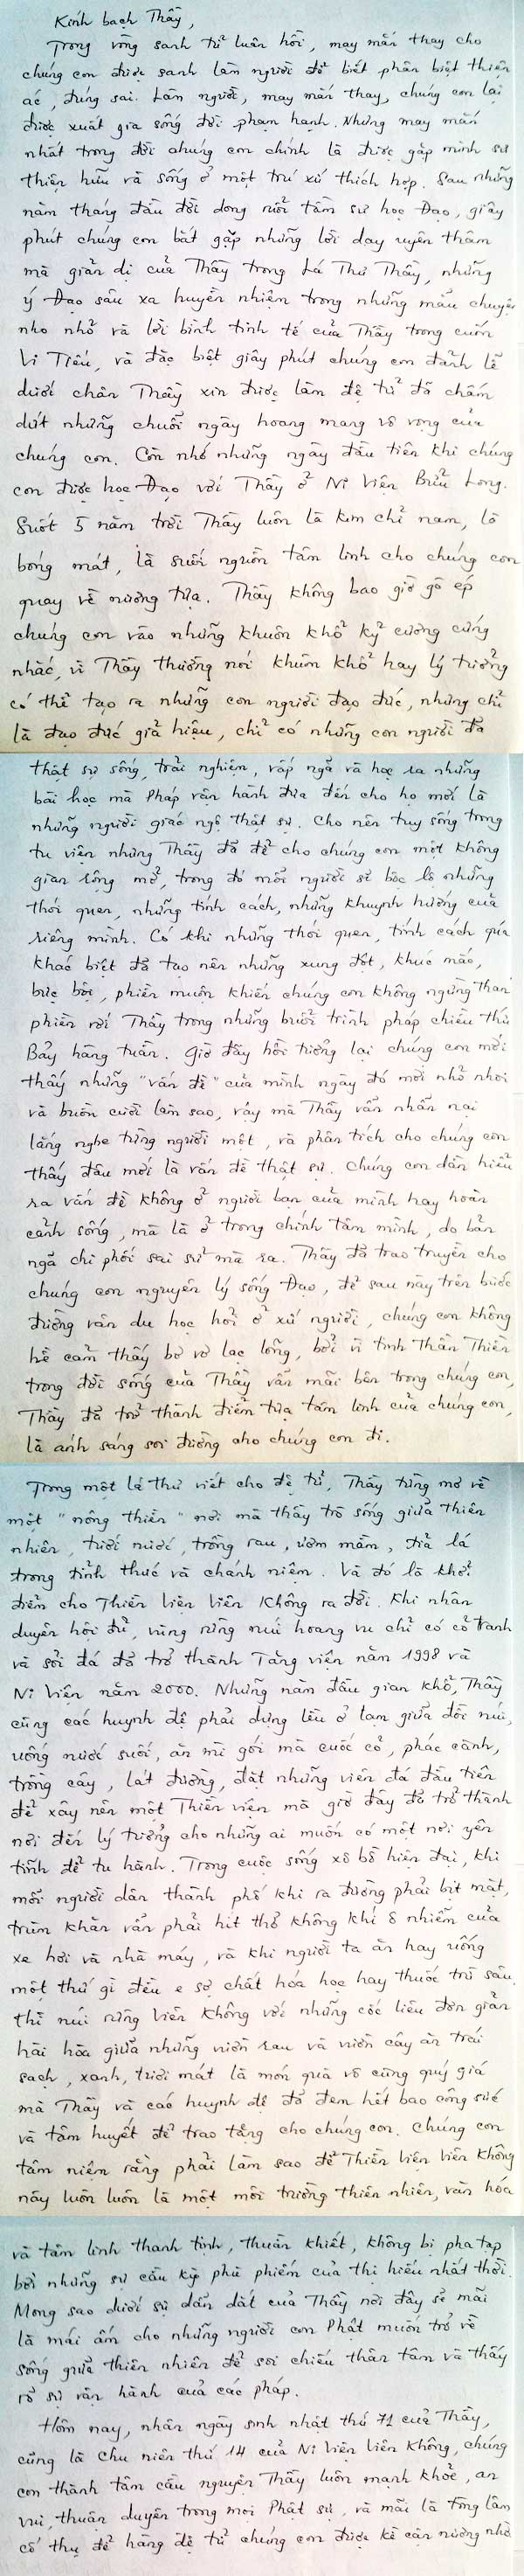 Kính bạch Thầy,
Trong vòng sanh tử luân hồi, may mắn thay cho
chúng con được sanh làm người để biết phân biệt thiện
ác, đúng sai. Làm người, may mắn thay, chúng con lại
được xuất gia sống đời phạm hạnh. Nhưng may mắn
nhất trong đời chúng con chính là được gặp minh sư
thiện hữu và sống ở một trú xứ thích hợp. Sau những
năm tháng đầu đời dong ruổi tầm sư học Đạo, giây
phút chúng con bắt gặp những lời dạy uyên thâm
mà giản dị của Thầy trong Lá Thư Thầy, những
ý Đạo sâu xa huyền nhiệm trong những mẩu chuyện
nho nhỏ và lời bình tinh tế của Thầy trong cuốn
Vi Tiếu, và đặc biệt giây phút chúng con đảnh lễ
dưới chân Thầy xin được làm đệ tử đã chấm
dứt những chuỗi ngày hoang mang vô vọng của
chúng con. Còn nhớ những ngày đầu tiên khi chúng
con được học Đạo với Thầy ở Ni Viện Bửu Long.
Suốt 5 năm trời Thầy luôn là kim chỉ nam, là
bóng mát, là suối nguồn tâm linh cho chúng con
quay về nương tựa. Thầy không bao giờ gò ép
chúng con vào những khuôn khổ kỷ cương cứng
nhắc, vì Thầy thường nói khuôn khổ hay lý tưởng
có thể tạo ra những con người đạo đức, nhưng chỉ
là đạo đức giả hiệu, chỉ có những con người đã
thật sự sống, trải nghiệm, vấp ngã và học ra những
bài học mà Pháp vận hành đưa đến cho họ mới là
những người giác ngộ thật sự. Cho nên tuy sống trong
tu viện nhưng Thầy đã để cho chúng con một không
gian rộng mở, trong đó mỗi người sẽ bộc lộ những
thói quen, những tính cách, những khuynh hướng của
riêng mình. Có khi những thói quen, tính cách quá
khác biệt đã tạo nên những xung đột, khúc mắc,
bực bội, phiền muộn khiến chúng con không ngừng than
phiền với Thầy trong những buổi trình pháp chiều thứ
Bảy hàng tuần. Giờ đây hồi tưởng lại chúng con mới
thấy những "vấn đề" của mình ngày đó mới nhỏ nhoi
và buồn cười làm sao, vậy mà Thầy vẫn nhẫn nại
lắng nghe từng người một, và phân tích cho chúng con
thấy đâu mới là vấn đề thật sự. Chúng con dần hiểu
ra vấn đề không ở người bạn của mình hay hoàn
cảnh sống, mà là ở trong chính tâm mình, do bản
ngã chi phối sai sử mà ra. Thầy đã trao truyền cho
chúng con nguyên lý sống Đạo, để sau này trên bước
đường vân du học hỏi ở xứ người, chúng con không
hề cảm thấy bơ vơ lạc lõng, bởi vì tinh thần Thiền
trong đời sống của Thầy vẫn mãi bên trong chúng con,
Thầy đã trở thành điểm tựa tâm linh của chúng con,
là ánh sáng soi đường cho chúng con đi.
Trong một lá thư viết cho đệ tử, Thầy từng mơ về
một "nông thiền" nơi mà thầy trò sống giữa thiên
nhiên, tưới nước, trồng rau, ươm mầm, tỉa lá
trong tỉnh thức và chánh niệm. Và đó là khởi
điểm cho Thiền Viện Viên Không ra đời. Khi nhân
duyên hội đủ, vùng rừng núi hoang vu chỉ có cỏ tranh
và sỏi đá đã trở thành Tăng viện năm 1998 và
Ni Viện năm 2000. Những năm đầu gian khổ, Thầy
cùng các huynh đệ phải dựng lều ở tạm giữa đồi núi,
uống nước suối, ăn mì gói mà cuốc cỏ, phác cành,
trồng cây, lát đường, đặt những viên đá đầu tiên
để xây nên một Thiền viện mà giờ đây đã trở thành
nơi đến lý tưởng cho những ai muốn có một nơi yên
tĩnh để tu hành. Trong cuộc sống xô bồ hiện đại, khi
mỗi người dân thành phố khi ra đường phải bịt mặt,
trùm khăn vẫn phải hít thở không khí ô nhiễm của
xe hơi và nhà máy, và khi người ta ăn hay uống
một thứ gì đều e sợ chất hóa học hay thuốc trừ sâu,
thì núi rừng Viên Không với những cốc liêu đơn giản
hài hòa giữa những vườn rau và vườn cây ăn trái
sạch, xanh, tươi mát là món quà vô cùng quý giá
mà Thầy và các huynh đệ đã đem hết bao công sức
và tâm huyết để trao tặng cho chúng con. Chúng con
tâm niệm rằng phải làm sao để Thiền Viện Viên Không
này luôn luôn là một môi trường thiên nhiên, văn hóa
và tâm linh thanh tịnh, thuần khiết, không bị pha tạp
bởi những sự cầu kỳ phù phiếm của thị hiếu nhất thời.
Mong sao dưới sự dẫn dắt của Thầy nơi đây sẽ mãi
là mái ấm cho những người con Phật muốn trở về
sống giữa thiên nhiên để soi chiếu thân tâm và thấy
rõ sự vận hành của các pháp.
Hôm nay, nhân ngày sinh nhật thứ 71 của Thầy,
cũng là chu niên thứ 14 của Ni Viện Viên Không, chúng
con thành tâm cầu nguyện Thầy luôn mạnh khỏe, an
vui, thuận duyên trong mọi Phật sự, và mãi là tòng lâm
cổ thụ để hàng đệ tử chúng con được kề cận nương nhờ